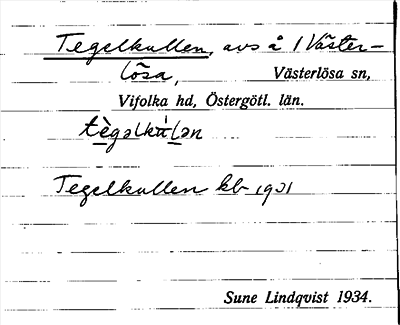 Tegelkullen, avs å 1 Väster-
lösa, Västerlösa sn,
Vifolka hd, Östergötl. län.
Tegelkullen kb 1931
Sune Lindqvist 1934.